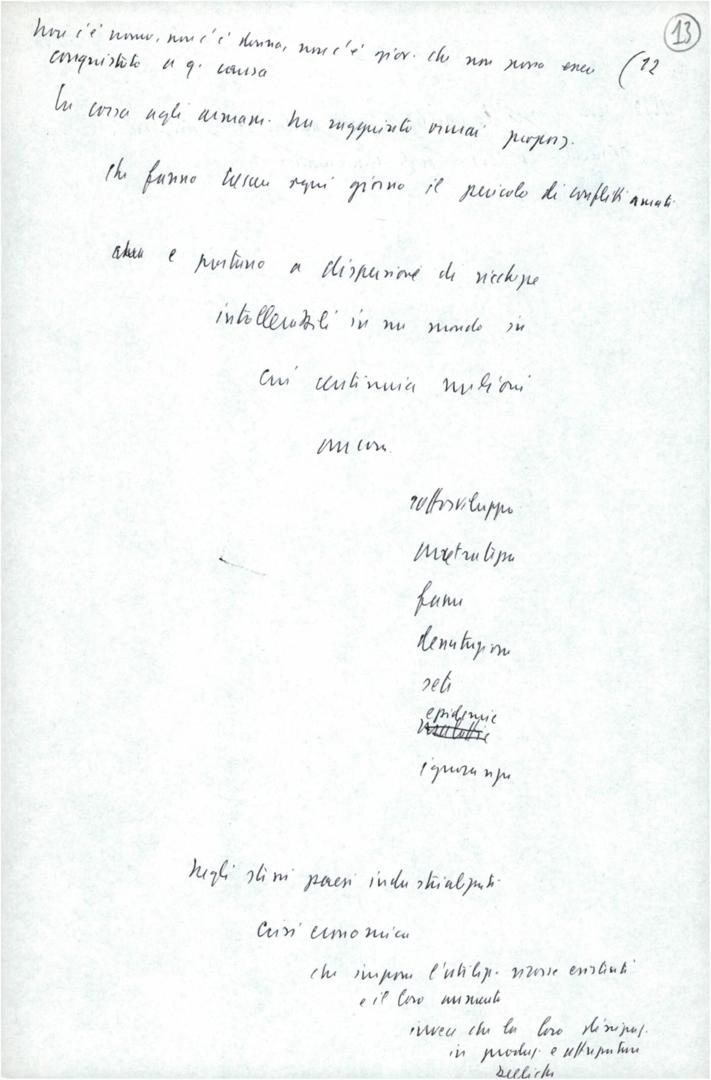 13
Non c'è uomo, non c'è donna, non c'è giov. che non possa essere (12
conquistato a q. causa
La corsa agli armam. ha raggiunto ormai proporz.
che fanno crescere ogni giorno il pericolo di conflitti armati
e portano a dispersione di ricchezze
intollerabili in un mondo in
cui centinaia milioni
ancora
sottosviluppo
fame
denutrizione
sete
epidemie
malattie
ignoranza
Negli stessi paesi industrializzati
Crisi economica
che impone l'utilizz. risorse esistenti
e il loro aumento
invece che la loro dissipaz.
in produz. e attrezzature
belliche